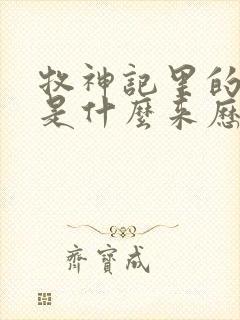 牧神记里的
是什麼来歷
齊寶成